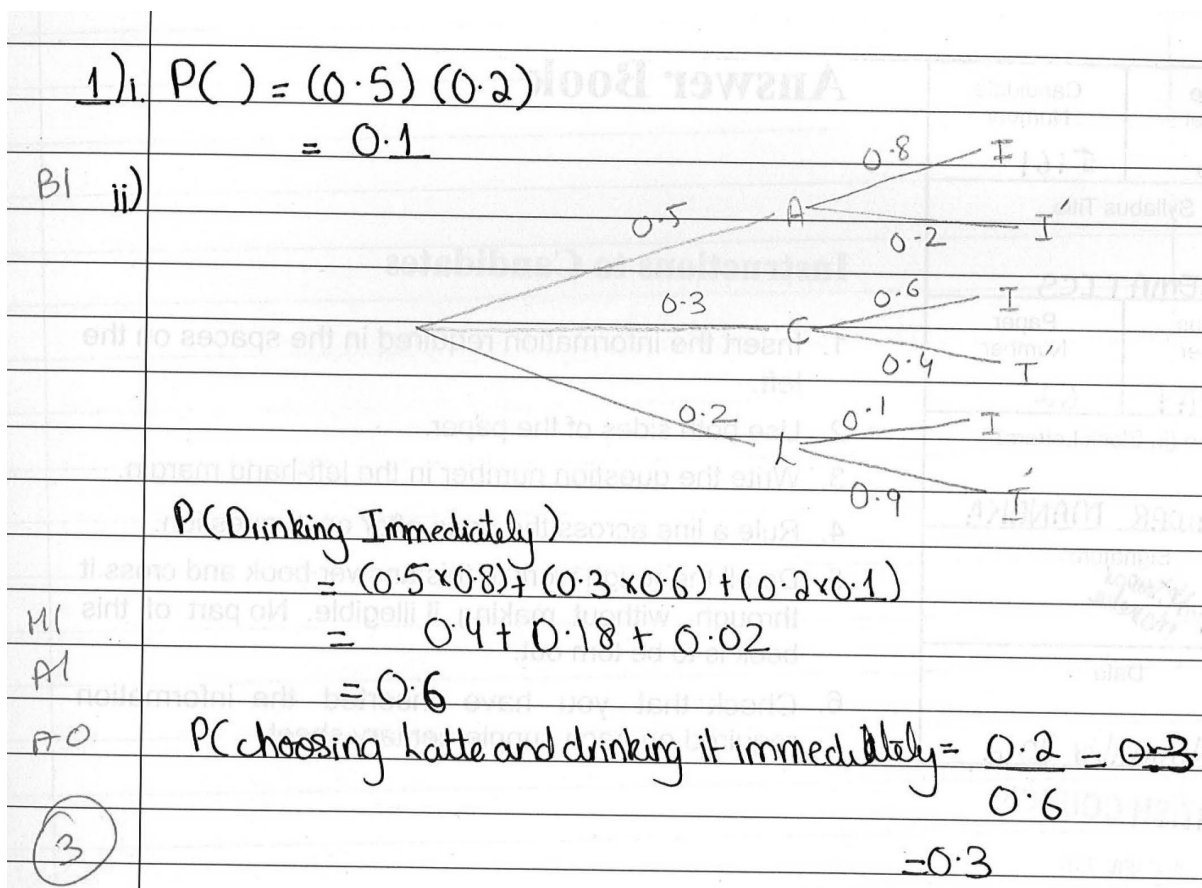 1)i. P( ) = (0.5) (0.2)
= 0.1
B1 ii)
0.8 I
0.5 A
0.2 I'
0.6 I
0.3 C
0.4 I'
0.1 I
0.2 L
0.9 I'
P(Drinking Immediately)
= (0.5×0.8)+(0.3×0.6)+(0.2×0.1)
M1 = 0.4+0.18+0.02
A1 = 0.6
A0 P(choosing Latte and drinking it immediately = 0.2 =
0.6
3 =0.3